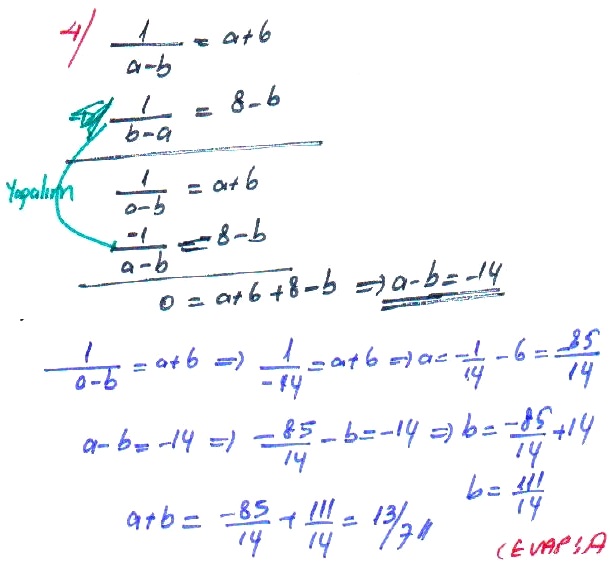 4) 1/(a-b) = a+6
1/(b-a) = 8-b
Yapalım
1/(a-b) = a+6
-1/(a-b) = 8-b
0 = a+6+8-b => a-b = -14
1/(a-b) = a+6 => 1/-14 = a+6 => a = -1/14 - 6 = -85/14
a-b = -14 => -85/14 - b = -14 => b = -85/14 + 14
b = 111/14
a+b = -85/14 + 111/14 = 13/7 //
CEVAP: A